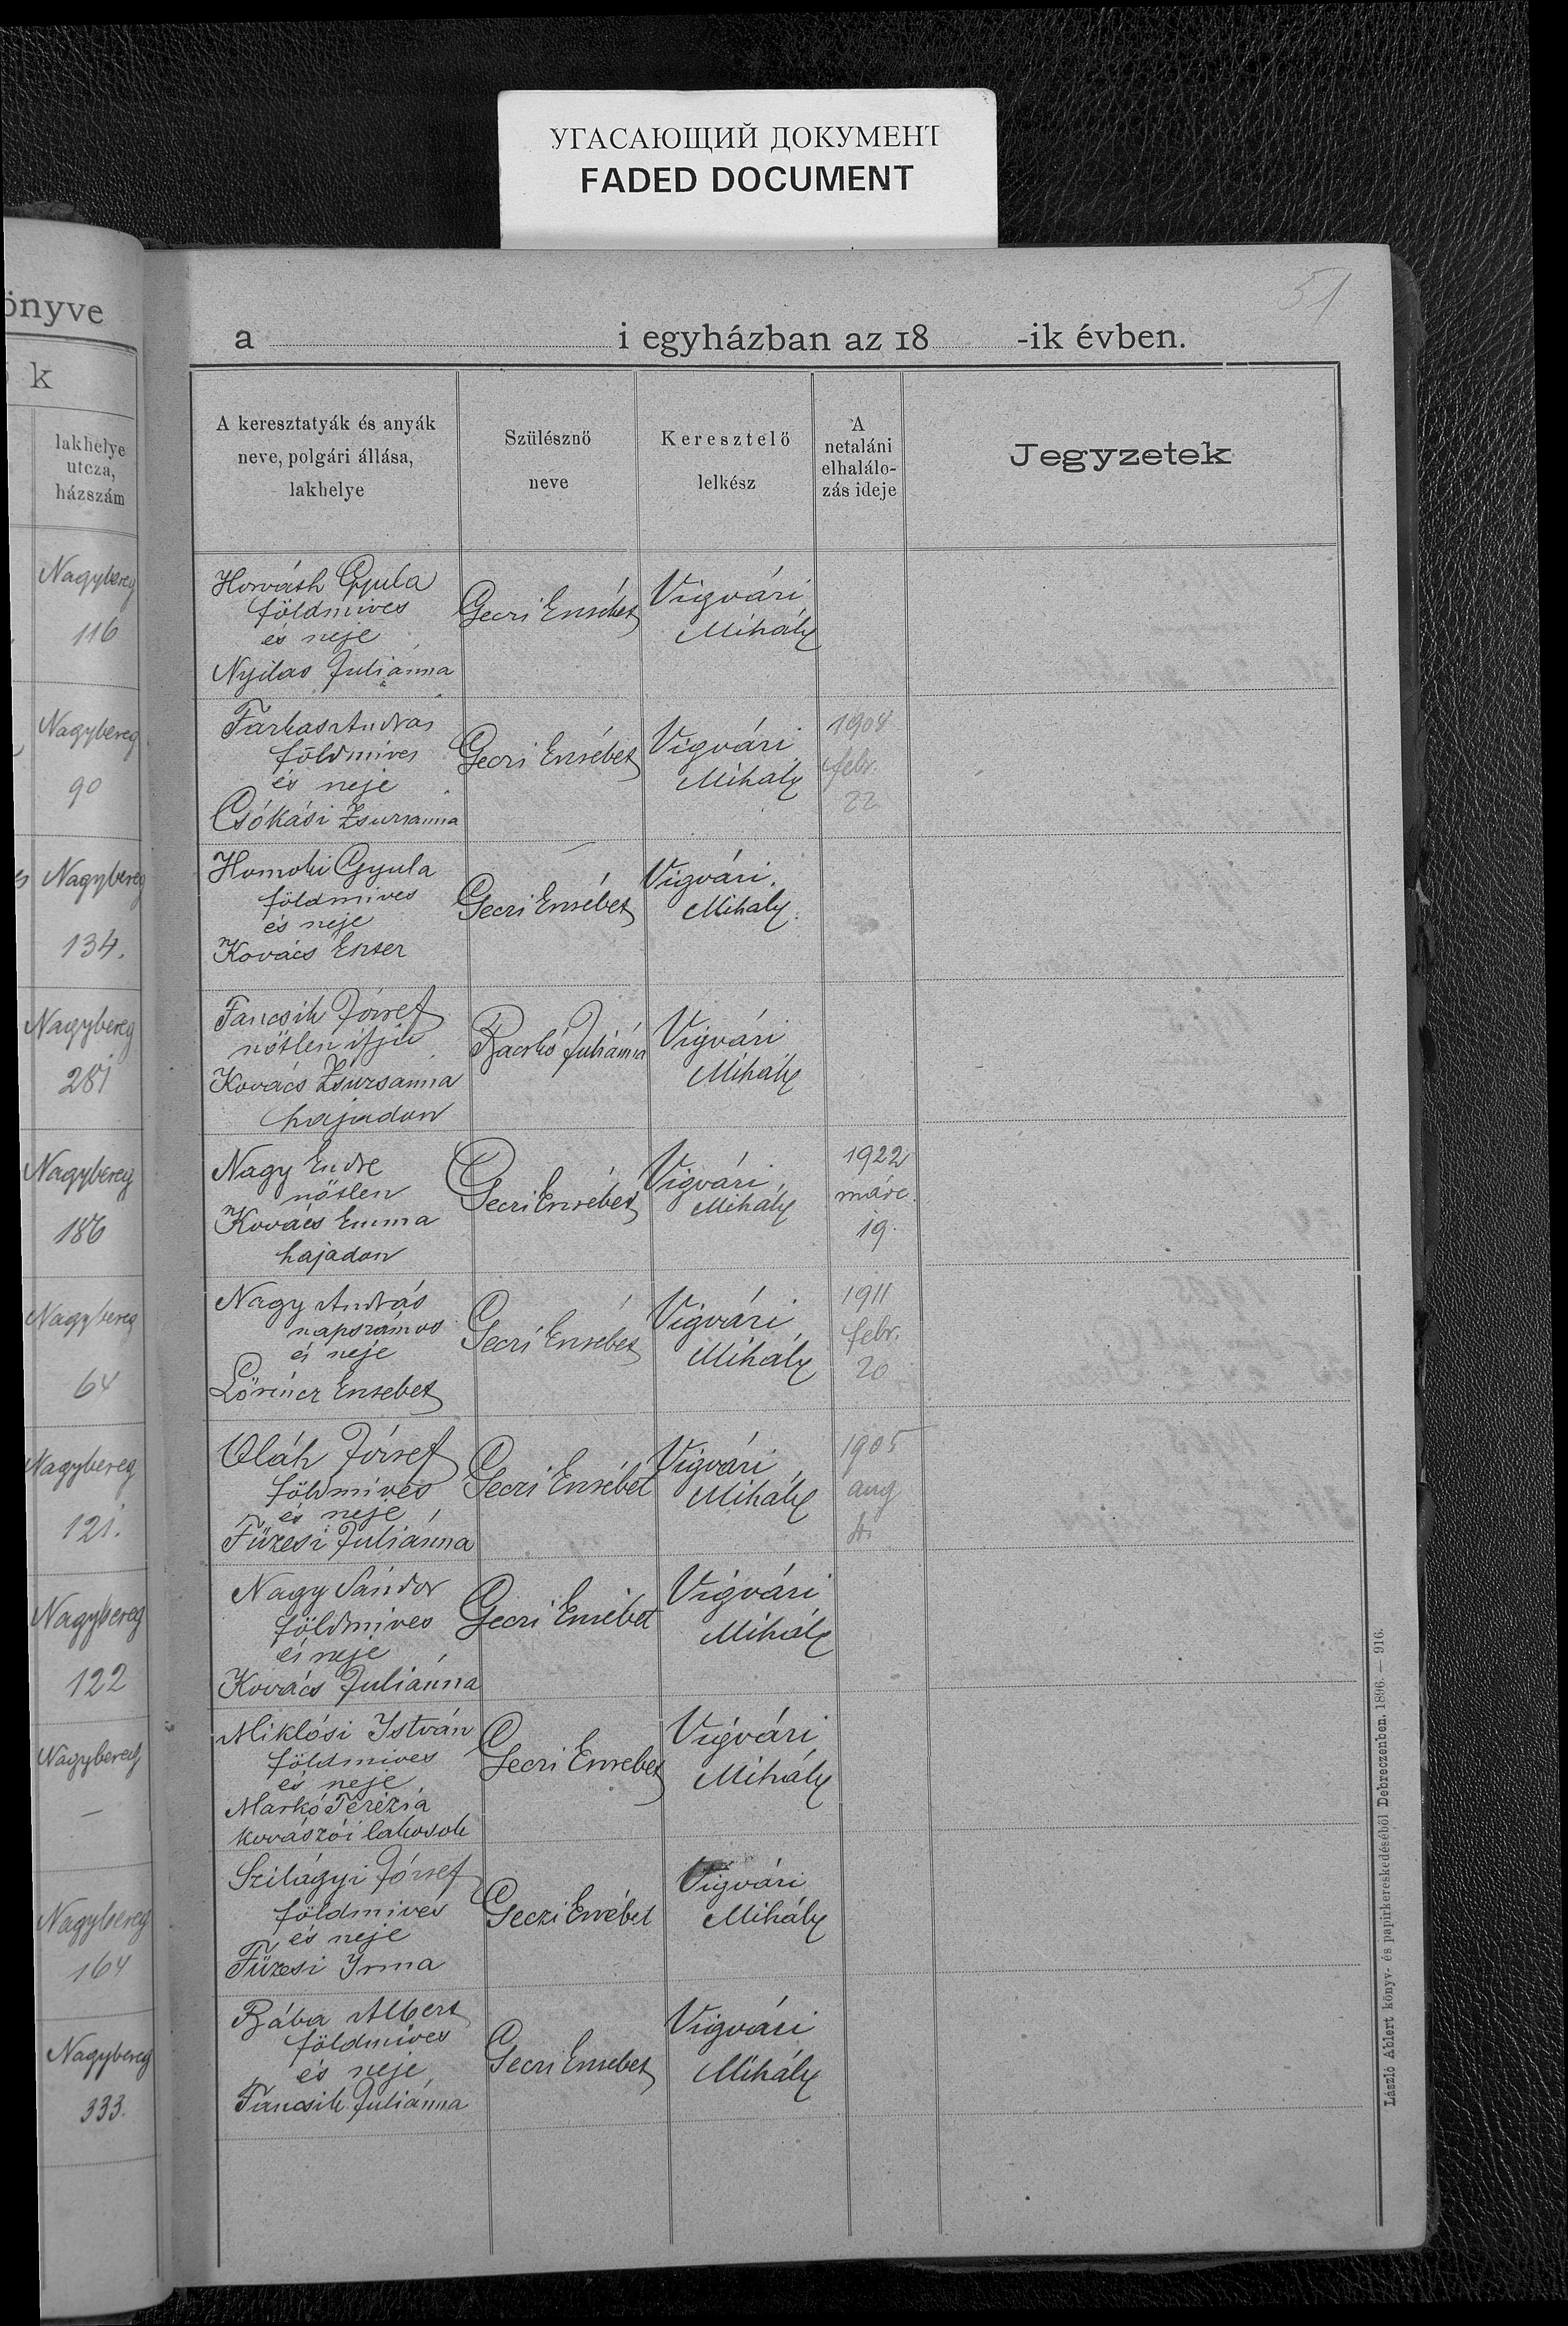 УГАСАЮЩИЙ ДОКУМЕНТ
FADED DOCUMENT
önyve
k
lakhelye
utcza,
házszám
Nagybereg
116
Nagybereg
90
Nagybereg
134.
Nagybereg
281
Nagybereg
186
Nagybereg
64
Nagybereg
121.
Nagybereg
122
Nagybereg
—
Nagybereg
164
Nagybereg
333.
51
a i egyházban az 18 -ik évben.
A keresztatyák és anyák
neve, polgári állása,
lakhelye
Szülésznő
neve
Keresztelő
lelkész
A
netaláni
elhalálo-
zás ideje
Jegyzetek
Horváth Gyula
földmives
és neje
Nyilas Juliánna
Geczi Erzsébet
Vigvári
Mihály
Farkas András
földmives
és neje
Csókási Zsuzsanna
Geczi Erzsébet
Vigvári
Mihály
1908
febr.
22
Homoki Gyula
földmives
és neje
Kovács Eszter
Geczi Erzsébet
Vigvári
Mihály
Fancsik József
nőtlen ifjú
Kovács Zsuzsanna
hajadon
Bacskó Juliánna
Vigvári
Mihály
Nagy Endre
nőtlen
Kovács Emma
hajadon
Geczi Erzsébet
Vigvári
Mihály
1922
márc.
19.
Nagy András
napszámos
és neje
Lörincz Erzsebet
Geczi Erzsébet
Vigvári
Mihály
1911
febr.
20
Oláh József
földmives
és neje
Füzesi Juliánna
Geczi Erzsébet
Vigvári
Mihály
1905
aug
Nagy Sándor
földmives
és neje
Kovács Juliánna
Geczi Erzsébet
Vigvári
Mihály
Miklósi István
földmives
és neje
Markó Terézia
kovászói lakosok
Geczi Erzsebet
Vigvári
Mihály
Szilágyi József
földmives
és neje
Füzesi Irma
Geczi Erzsébet
Vigvári
Mihály
Bába Albert
földmives
és neje
Fancsik Juliánna
Geczi Erzsebet
Vigvári
Mihály
László Albert könyv- és papirkereskedéséből Debreczenben. 1896. — 916.